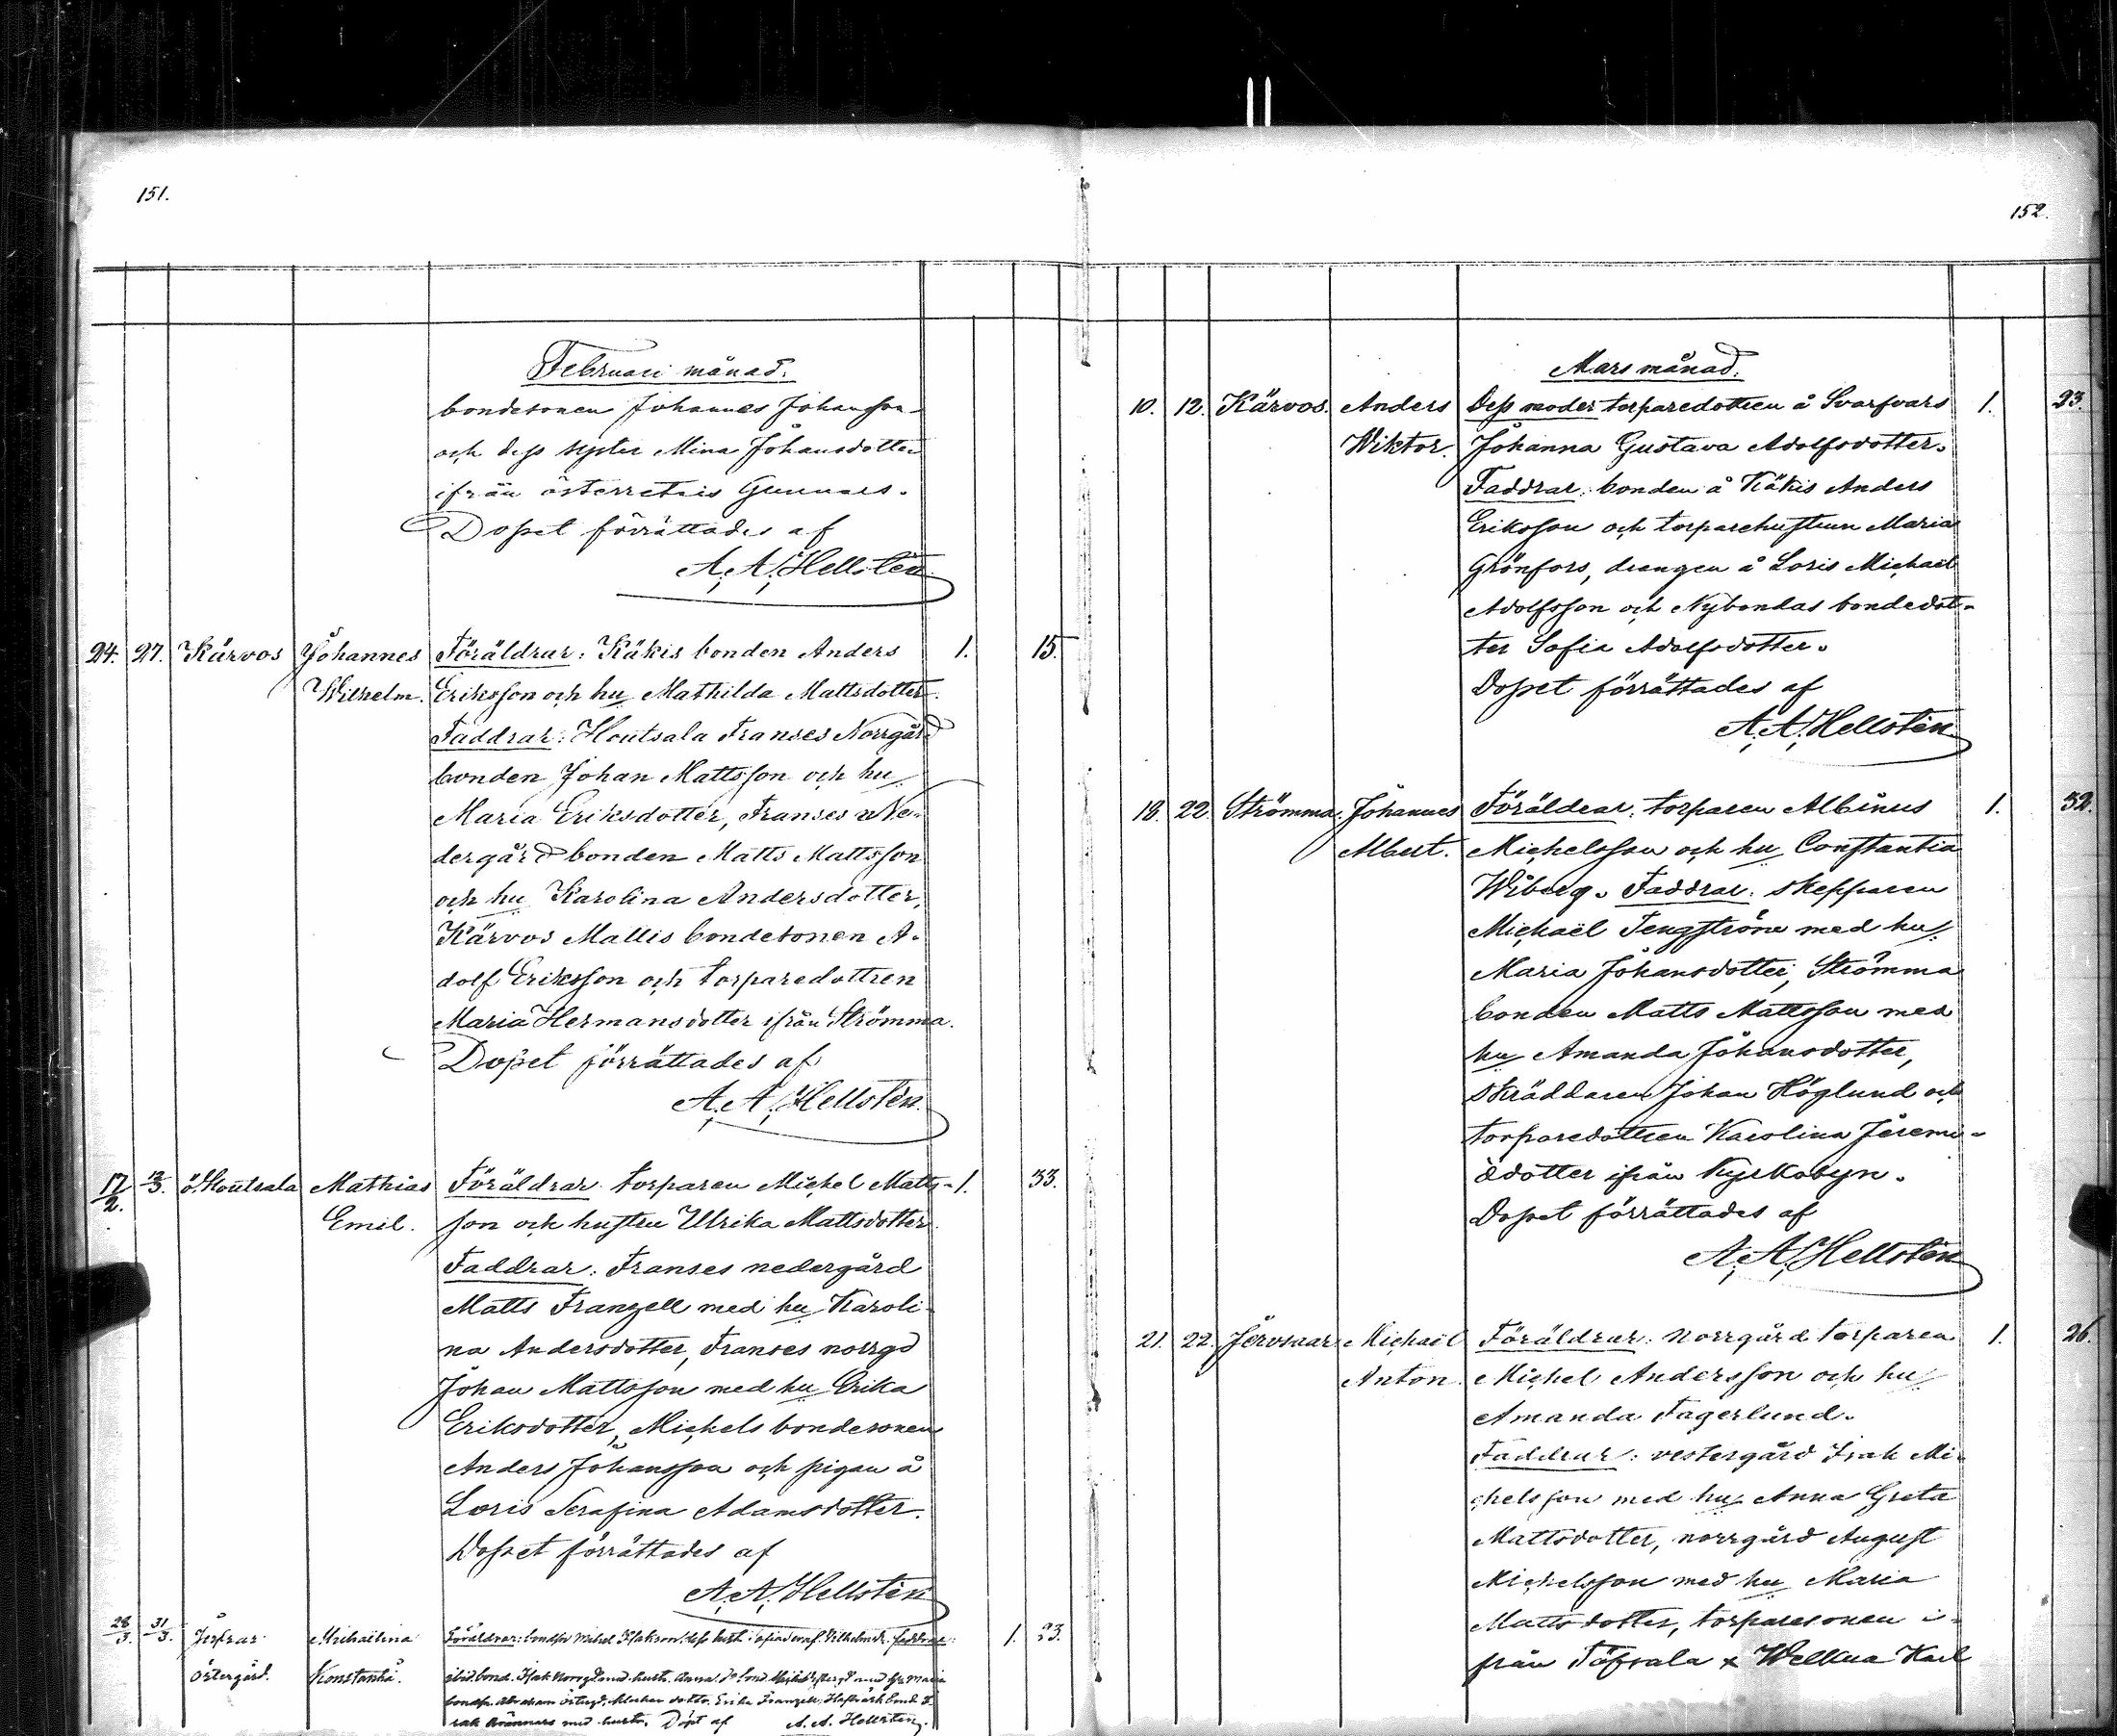 151.
Februari månad.
bondesonen Johannes Johansson
och dess syster Mina Johansdotter
ifrån österretais Gunnars.
Dopet förrättades af
A. A. Hellstén
24. 27. Kärvos Johannes Föräldrar: Käkis bonden Anders 1. 15.
Wilhelm. Eriksson och hu Mathilda Mattsdotter.
Faddrar: Houtsala Franses Norrgård
bonden Johan Mattsson och hu
Maria Eriksdotter, Franses Ne-
dergård bonden Matts Mattsson
och hu Karolina Andersdotter,
Kärvos Mallis bondesonen A-
dolf Eriksson och torparedottren
Maria Hermansdotter ifrån Strömma.
Dopet förrättades af
A. A. Hellstén.
17/2. 12/3. ö. Houtsala Mathias Föräldrar: torparen Michel Matts- 1. 33.
Emil. son och hustru Ulrika Mattsdotter.
Faddrar: Franses nedergård
Matts Franzell med hu Karoli-
na Andersdotter, Franses norrgd
Johan Mattsson med hu Erika
Eriksdotter, Michels bondesonen
Anders Johansson och pigan å
Loris Serafina Adamsdotter.
Dopet förrättades af
A. A. Hellstén
28/3. 31/3. Michaelina Föräldrar: Michel dess hust. Faddrar: 1. 33.
östergård. Konstantia. bond. Isak Norrgd med hustr. Anna med Maria
Abraham Erika Franzell,
med hustr. Döpt af A. A. Hellstén.
152.
Mars månad.
10. 12. Kärvos. Anders Dess moder torparedottren å Svarfvars 1. 23.
Wiktor. Johanna Gustava Adolfsdotter.
Faddrar: bonden å Käkis Anders
Eriksson och torparehustrun Maria
Grönfors, drengen å Loris Michaël
Adolfsson och Nybondas bondedot-
ter Sofia Adolfsdotter.
Dopet förrättades af
A. A. Hellstén
18. 22. Strömma. Johannes Föräldrar: torparen Albinus 1. 32.
Albert. Michelsson och hu Constantia
Wiberg. Faddrar: skepparen
Michaël Tengström med hu
Maria Johansdotter, Strömma
bonden Matts Mattsson med
hu Amanda Johansdotter,
skräddaren Johan Höglund och
torparedottren Karolina Jeremi-
ædotter ifrån Kyrkobyn.
Dopet förrättades af
A. A. Hellstén
21. 22. Michaël Föräldrar: Norrgård torparen 1. 26.
Anton. Michel Andersson och hu
Amanda Fagerlund.
Faddrar: vestergård Isak Mi-
chelsson med hu Anna Greta
Mattsdotter, norrgård August
Michelsson med hu Maria
Mattsdotter, torparesonen i-
från Töfsala Karl